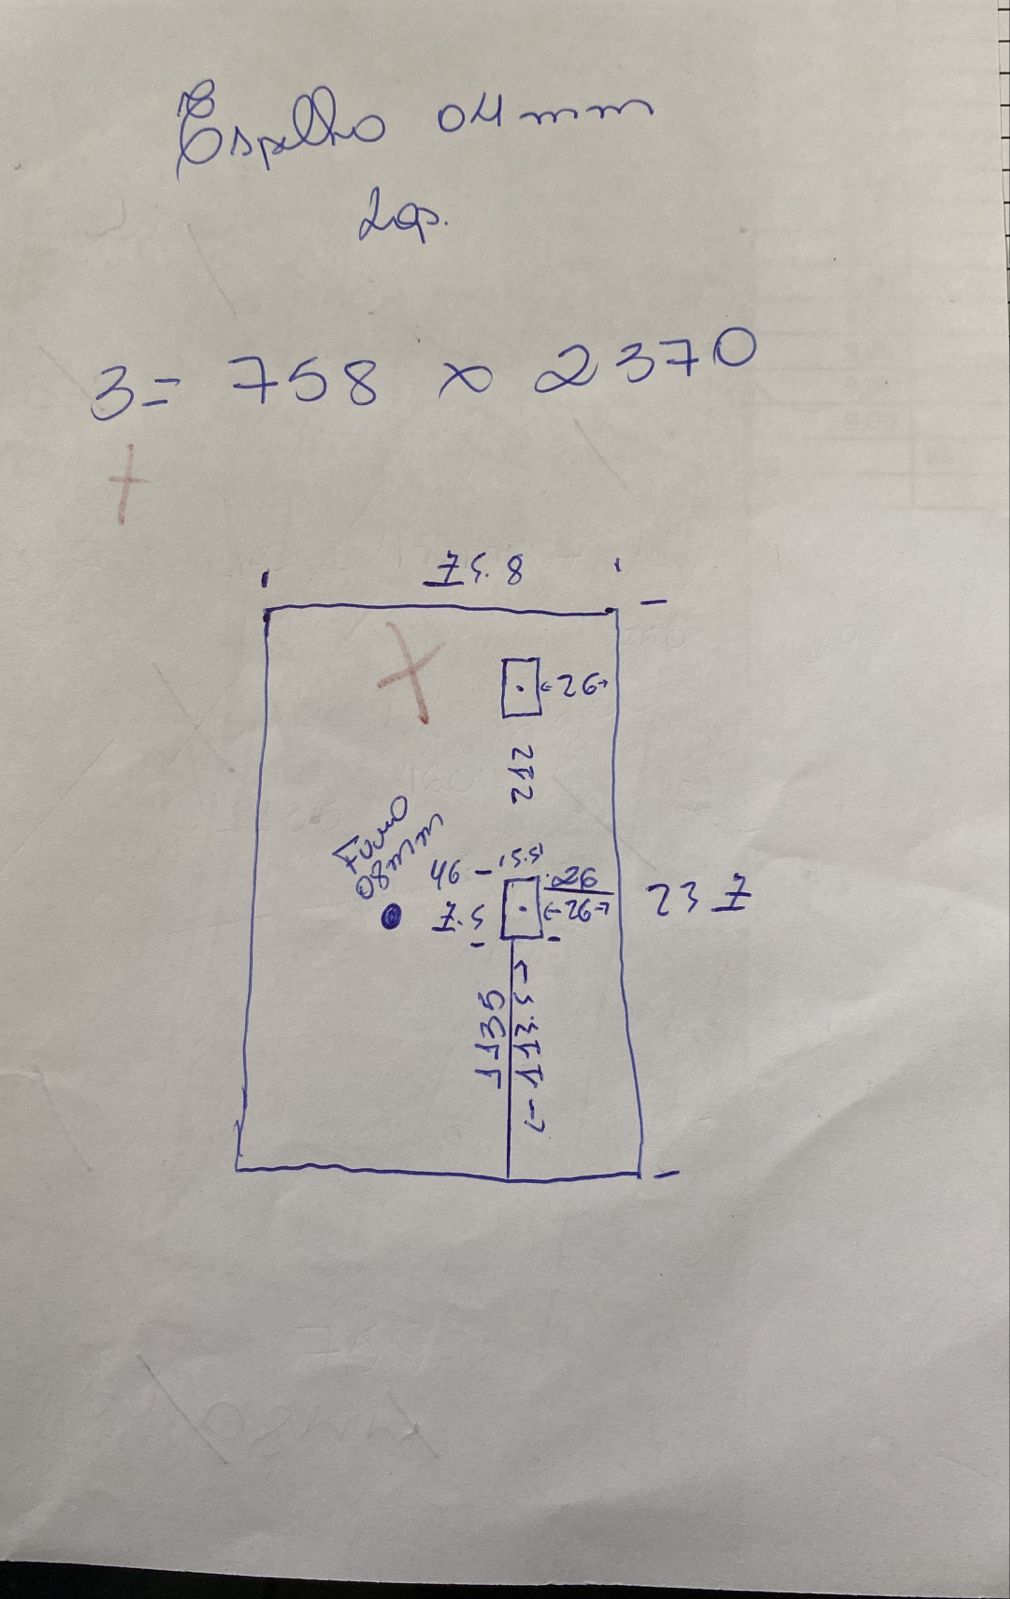 Espelho 04mm
Lap.
3= 758 x 2370
75.8
26
212
Furo
08mm
46
5.5
26
7.5
26
237
1135
113.5